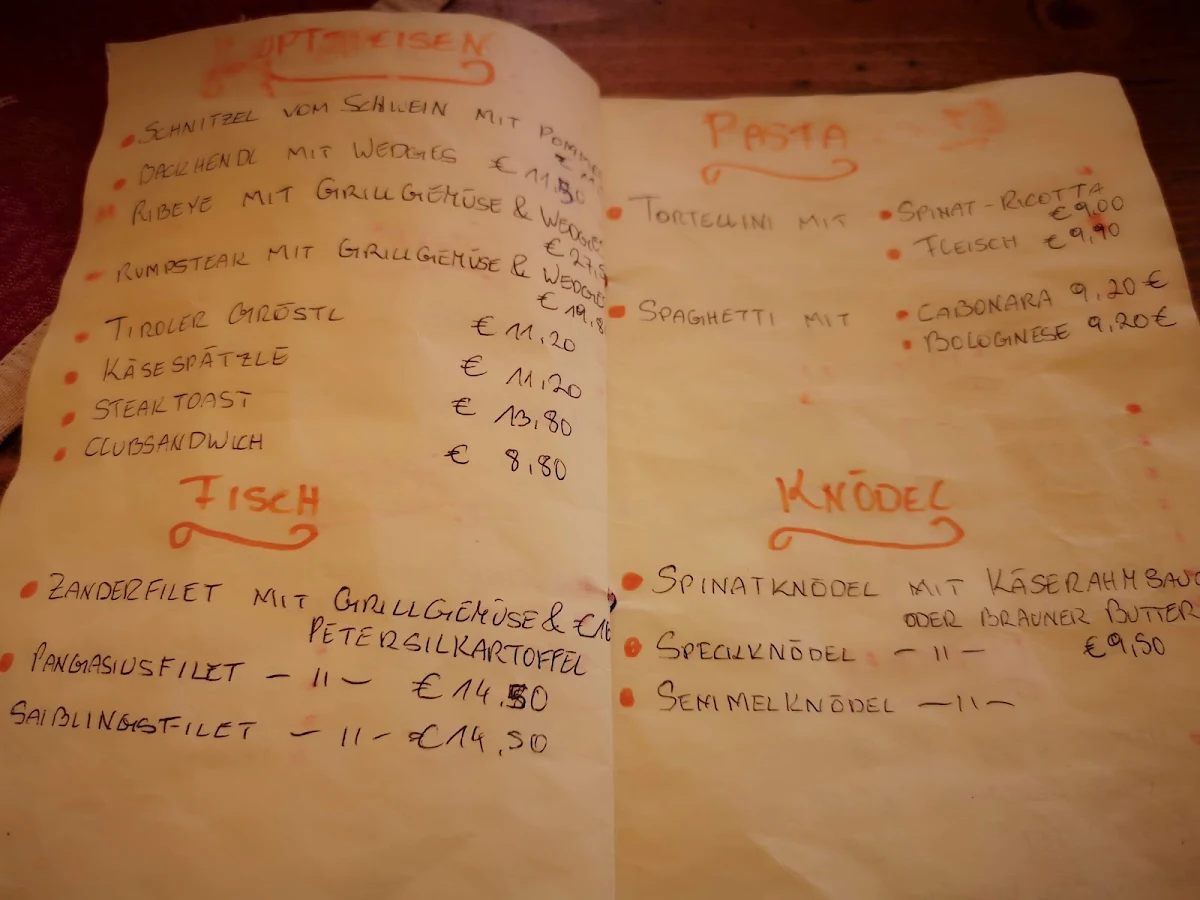 HAUPTSPEISEN
• SCHNITZEL VOM SCHWEIN MIT POMME
• BACKHENDL MIT WEDGES € 11.50
RIBEYE MIT GRILLGEMÜSE & WEDGES
€ 27,5
RUMPSTEAK MIT GRILLGEMÜSE & WEDGES
€ 19,8
• TIROLER GRÖSTL € 11,20
• KÄSESPÄTZLE € 11,20
• STEAKTOAST € 13,80
• CLUBSANDWICH € 8,80
FISCH
• ZANDERFILET MIT GRILLGEMÜSE & €16
PETERSILKARTOFFEL
• PANGASIUSFILET — 11 — € 14.50
SAIBLINGSFILET — 11 — € 14,50
PASTA
• TORTELLINI MIT • SPINAT-RICOTTA
€ 9,00
• FLEISCH € 9,90
• SPAGHETTI MIT • CABONARA 9,20 €
• BOLOGNESE 9,20 €
KNÖDEL
• SPINATKNÖDEL MIT KÄSERAHMSAUC
ODER BRAUNER BUTTER
• SPECKKNÖDEL — 11 — € 9,50
• SEMMELKNÖDEL — 11 —